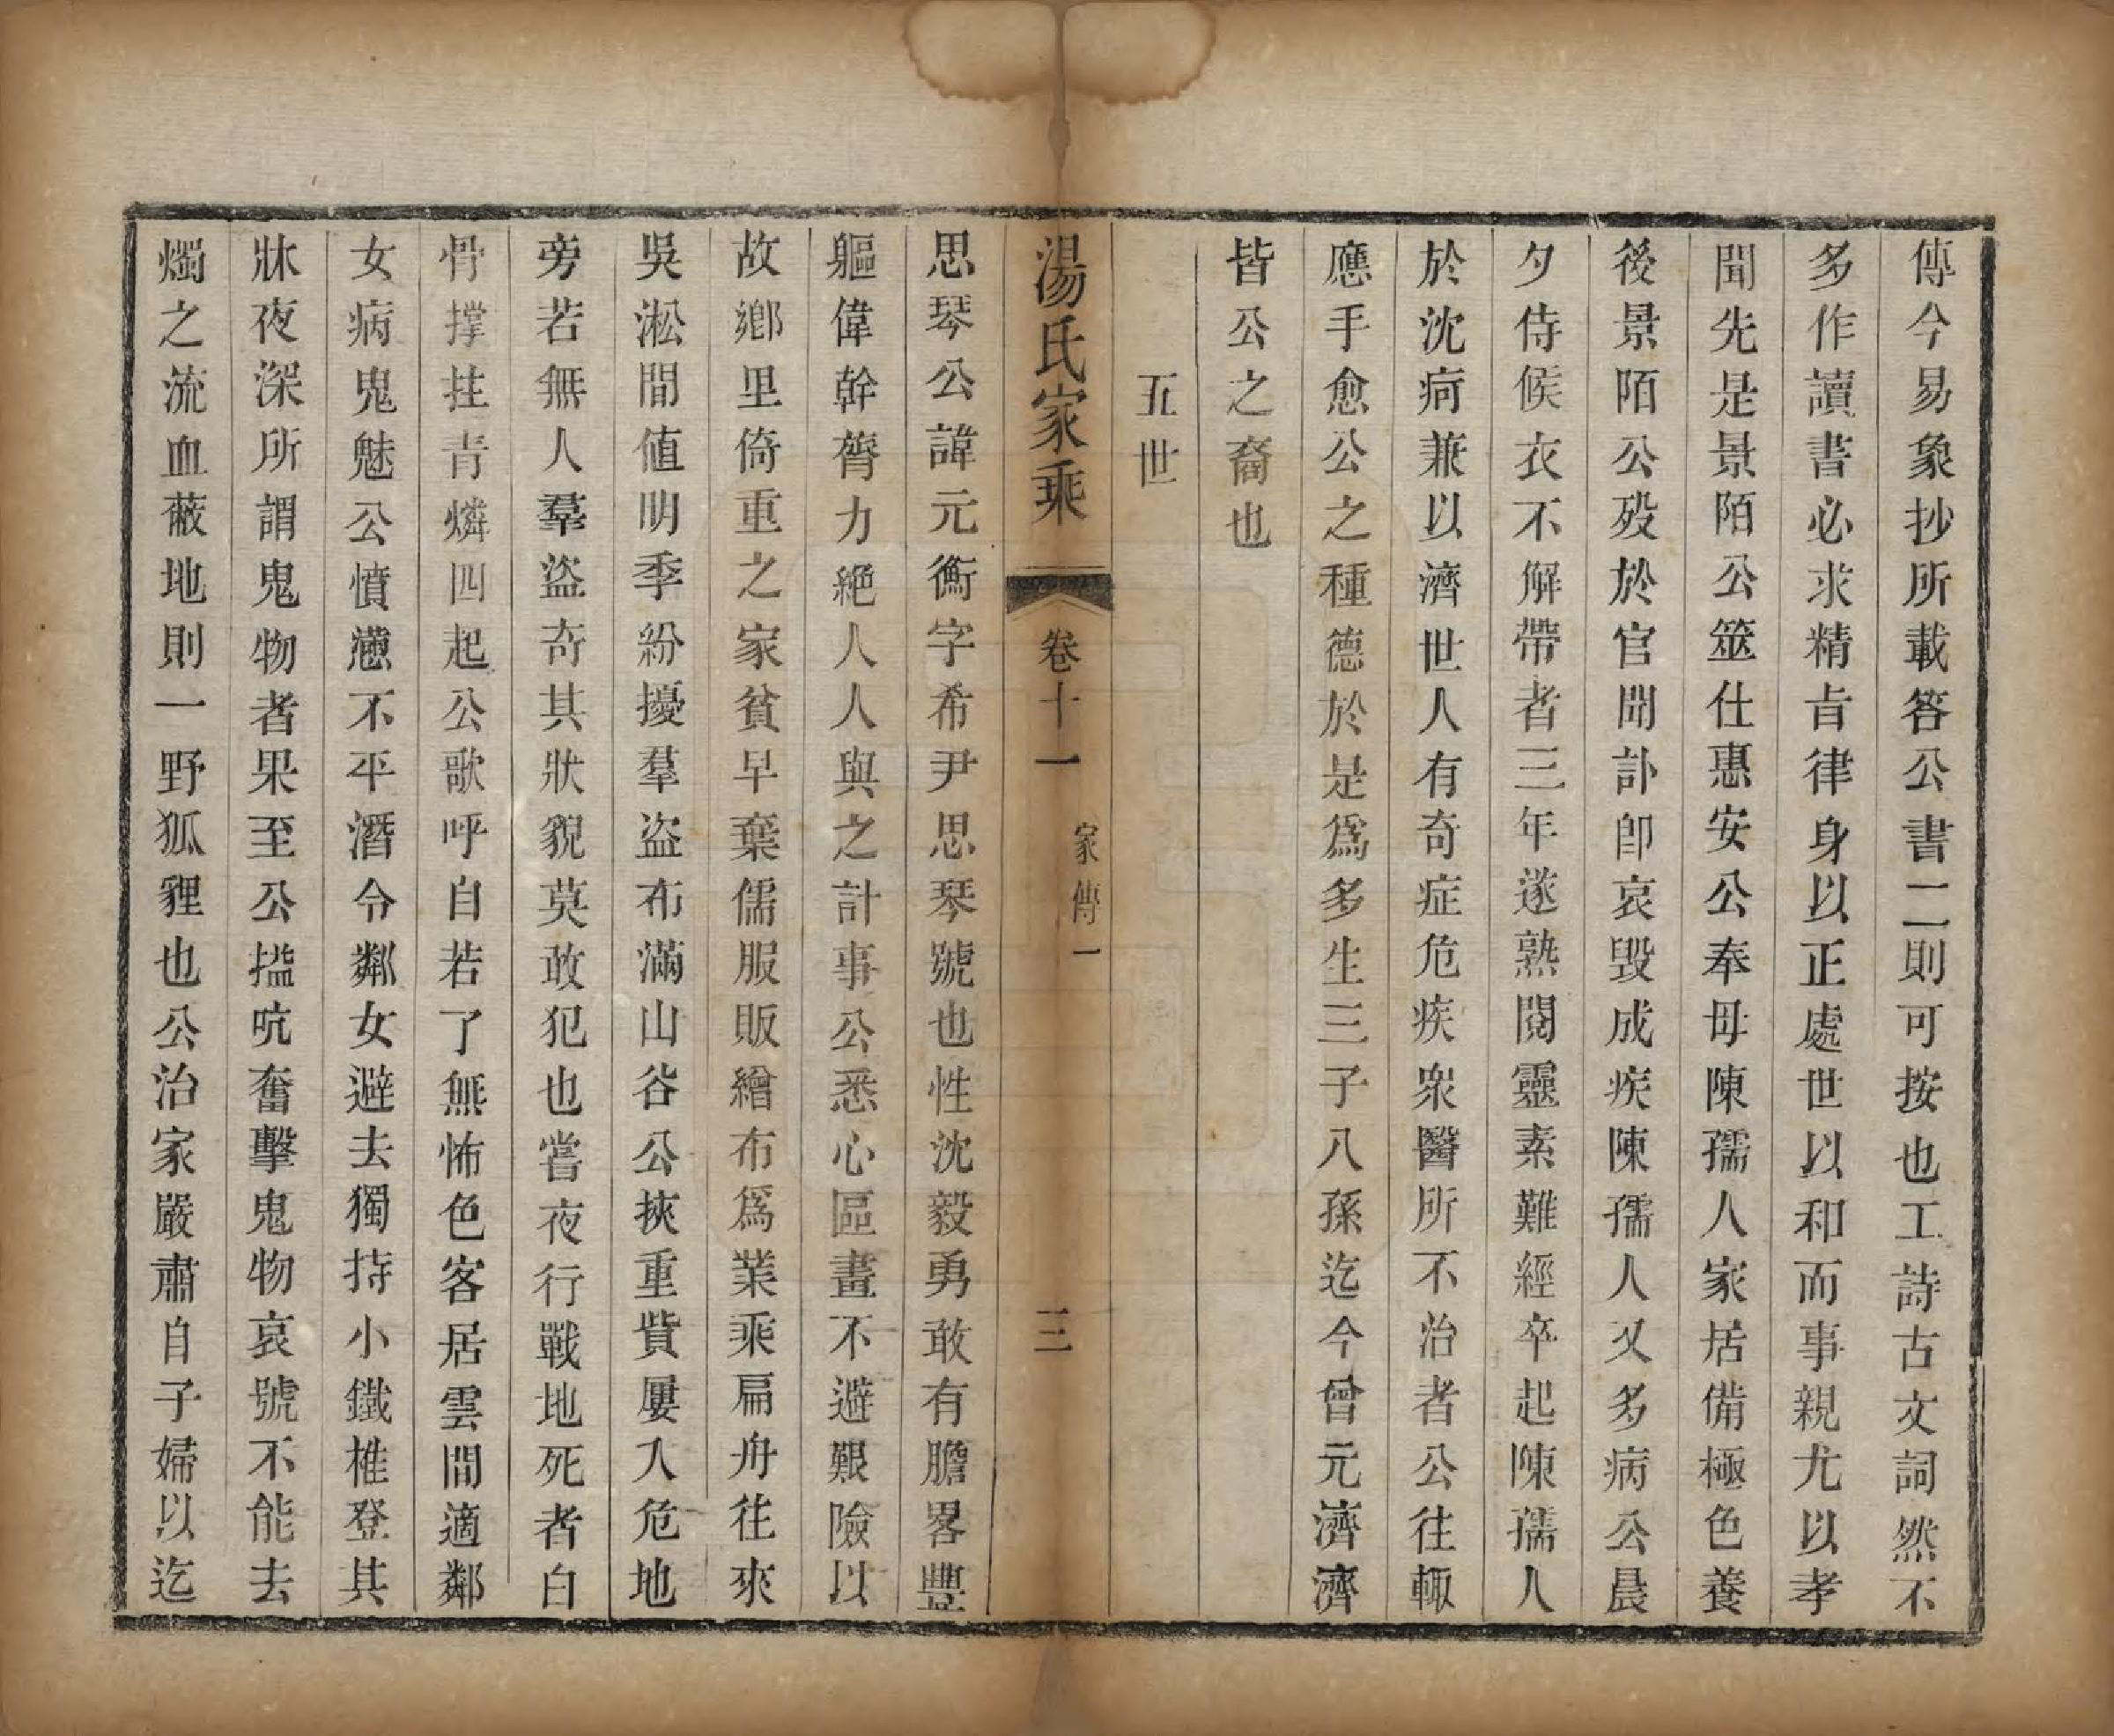 傳今易象抄所載答公書二則可按也工詩古文詞然不
多作讀書必求精旨律身以正處世以和而事親尤以孝
聞先是景陌公筮仕惠安公奉母陳孺人家居備極色養
後景陌公歿於官聞訃卽哀毀成疾陳孺人又多病公晨
夕侍候衣不解帶者三年遂熟閱靈素難經卒起陳孺人
於沈疴兼以濟世人有奇症危疾衆醫所不治者公往輒
應手愈公之種德於是爲多生三子八孫迄今曾元濟濟
皆公之裔也
五世
湯氏家乘
卷十一
家傳一
三
思琴公諱元衡字希尹思琴號也性沈毅勇敢有膽畧豐
軀偉幹膂力絕人人與之計事公悉心區畫不避艱險以
故鄉里倚重之家貧早棄儒服販繒布爲業乘扁舟往來
吳淞間值明季紛擾羣盜布滿山谷公挾重貲屢入危地
旁若無人羣盜奇其狀貌莫敢犯也嘗夜行戰地死者白
骨撑拄青燐四起公歌呼自若了無怖色客居雲間適鄰
女病鬼魅公憤懣不平潛令鄰女避去獨持小鐵椎登其
牀夜深所謂鬼物者果至公搤吭奮擊鬼物哀號不能去
燭之流血蔽地則一野狐貍也公治家嚴肅自子婦以迄